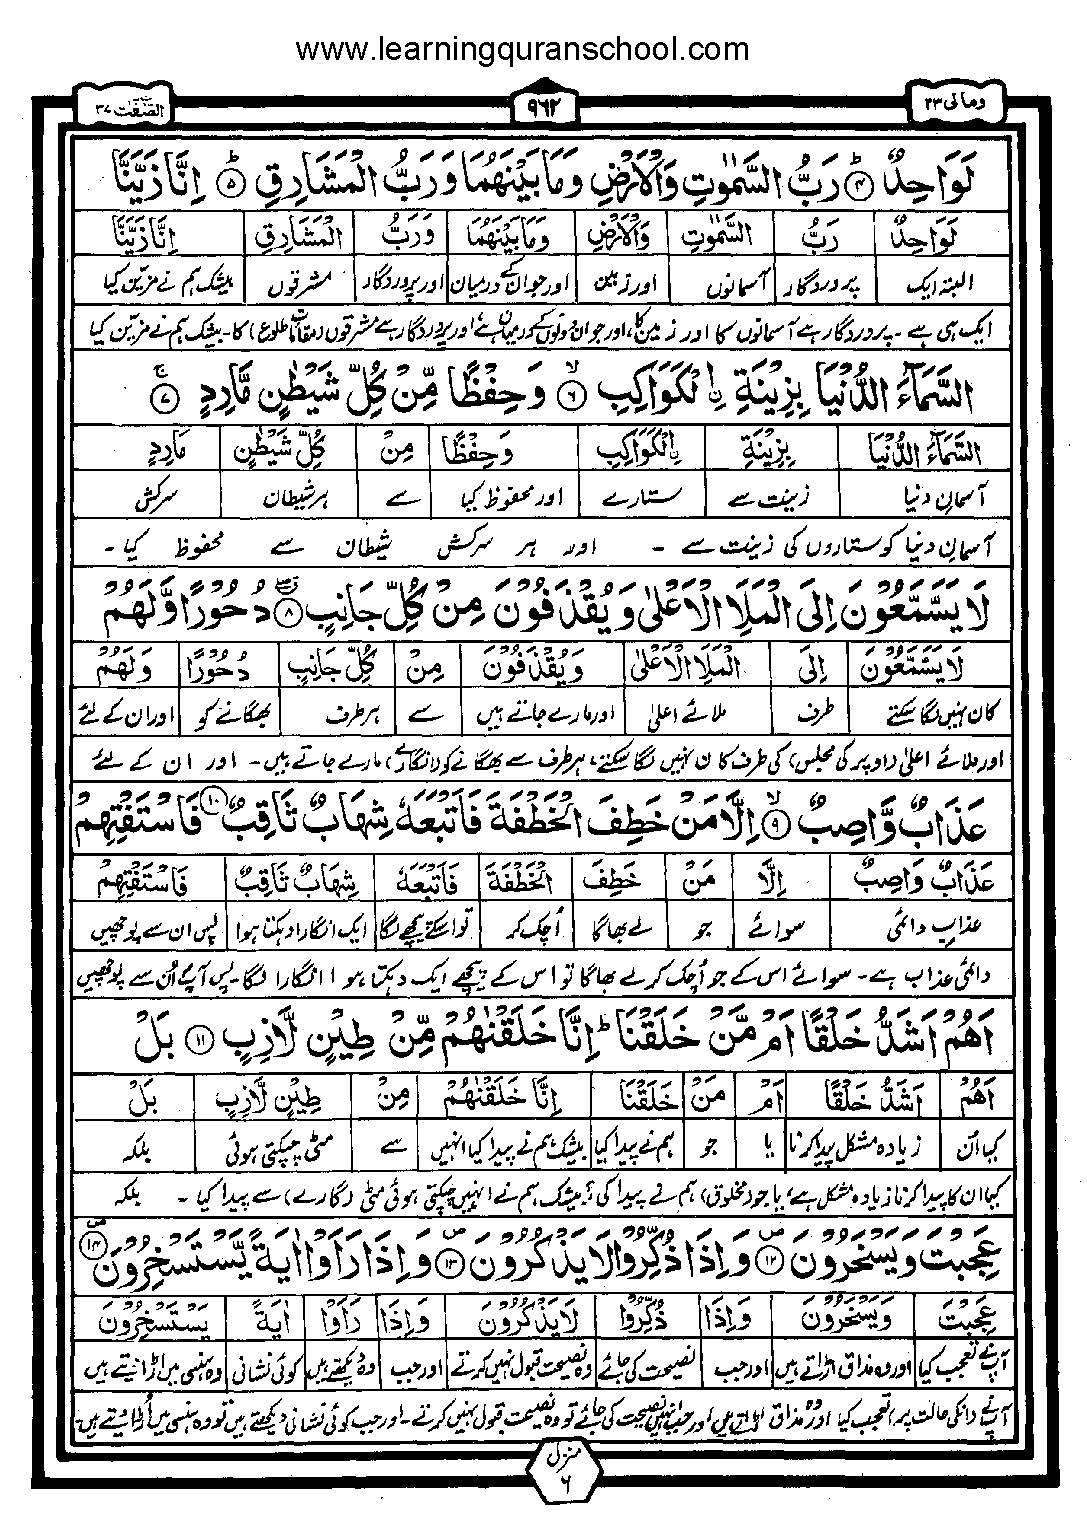 www.learningquranschool.com
وما لی ۲۳
۹۶۲
الصّٰفّٰت ۳۷
لَوَاحِدٌ ﴿۴﴾ رَبُّ السَّمٰوٰتِ وَالْاَرْضِ وَمَا بَيْنَهُمَا وَرَبُّ الْمَشَارِقِ ﴿۵﴾ اِنَّا زَيَّنَّا
لَوَاحِدٌ رَبُّ السَّمٰوٰتِ وَالْاَرْضِ وَمَا بَيْنَهُمَا وَرَبُّ الْمَشَارِقِ اِنَّا زَيَّنَّا
البتہ ایک پروردگار آسمانوں اور زمین اور جو ان کے درمیان اور پروردگار مشرقوں بیشک ہم نے مزیّن کیا
ایک ہی ہے ۔ پروردگار ہے آسمانوں کا اور زمین کا، اور جو ان دونوں کے درمیان ہے اور پروردگار ہے مشرقوں (مقاماتِ طلوع) کا۔ بیشک ہم نے مزیّن کیا
السَّمَآءَ الدُّنْيَا بِزِيْنَةِ ِۨالْكَوَاكِبِ ﴿۶﴾ وَحِفْظًا مِّنْ كُلِّ شَيْطٰنٍ مَّارِدٍ ﴿۷﴾
السَّمَآءَ الدُّنْيَا بِزِيْنَةِ ِۨالْكَوَاكِبِ وَحِفْظًا مِنْ كُلِّ شَيْطٰنٍ مَارِدٍ
آسمانِ دنیا زینت سے ستارے اور محفوظ کیا سے ہر شیطان سرکش
آسمانِ دنیا کو ستاروں کی زینت سے ۔ اور ہر سرکش شیطان سے محفوظ کیا ۔
لَا يَسَّمَّعُوْنَ اِلَى الْمَلَاِ الْاَعْلٰى وَيُقْذَفُوْنَ مِنْ كُلِّ جَانِبٍ ﴿۸﴾ دُحُوْرًا وَّلَهُمْ
لَا يَسَّمَّعُوْنَ اِلَى الْمَلَاِ الْاَعْلٰى وَيُقْذَفُوْنَ مِنْ كُلِّ جَانِبٍ دُحُوْرًا وَلَهُمْ
کان نہیں لگا سکتے طرف ملائے اعلیٰ اور مارے جاتے ہیں سے ہر طرف بھگانے کو اور ان کے لئے
اور ملائے اعلیٰ (اوپر کی مجلس) کی طرف کان نہیں لگا سکتے، ہر طرف سے بھگانے کو (انگارے) مارے جاتے ہیں ۔ اور ان کے لئے
عَذَابٌ وَّاصِبٌ ﴿۹﴾ اِلَّا مَنْ خَطِفَ الْخَطْفَةَ فَاَتْبَعَهٗ شِهَابٌ ثَاقِبٌ ﴿۱۰﴾ فَاسْتَفْتِهِمْ
عَذَابٌ وَاصِبٌ اِلَّا مَنْ خَطِفَ الْخَطْفَةَ فَاَتْبَعَهٗ شِهَابٌ ثَاقِبٌ فَاسْتَفْتِهِمْ
عذاب دائمی سوائے جو لے بھاگا اُچک کر تو اس کے پیچھے لگا ایک انگارا دہکتا ہوا پس ان سے پوچھیں
دائمی عذاب ہے۔ سوائے اس کے جو اُچک کر لے بھاگا تو اس کے پیچھے ایک دہکتا ہوا انگارا لگا۔ پس آپؐ اُن سے پوچھیں
اَهُمْ اَشَدُّ خَلْقًا اَمْ مَّنْ خَلَقْنَا ؕ اِنَّا خَلَقْنٰهُمْ مِّنْ طِيْنٍ لَّازِبٍ ﴿۱۱﴾ بَلْ
اَهُمْ اَشَدُّ خَلْقًا اَمْ مَنْ خَلَقْنَا اِنَّا خَلَقْنٰهُمْ مِنْ طِيْنٍ لَّازِبٍ بَلْ
کیا اُن زیادہ مشکل پیدا کرنا یا جو ہم نے پیدا کیا بیشک ہم نے پیدا کیا انہیں سے مٹی چپکتی ہوئی بلکہ
کیا ان کا پیدا کرنا زیادہ مشکل ہے؟ یا جو (مخلوق) ہم نے پیدا کی؟ بیشک ہم نے انہیں چپکتی ہوئی مٹی (گارے) سے پیدا کیا ۔ بلکہ
عَجِبْتَ وَيَسْخَرُوْنَ ﴿۱۲﴾ وَاِذَا ذُكِّرُوْا لَا يَذْكُرُوْنَ ﴿۱۳﴾ وَاِذَا رَاَوْا اٰيَةً يَّسْتَسْخِرُوْنَ ﴿۱۴﴾
عَجِبْتَ وَيَسْخَرُوْنَ وَاِذَا ذُكِّرُوْا لَا يَذْكُرُوْنَ وَاِذَا رَاَوْا اٰيَةً يَسْتَسْخِرُوْنَ
آپ نے تعجب کیا اور وہ مذاق اڑاتے ہیں اور جب نصیحت کی جائے وہ نصیحت قبول نہیں کرتے اور جب وہ دیکھتے ہیں کوئی نشانی وہ ہنسی میں اڑا دیتے ہیں
آپ نے (انکی حالت پر) تعجب کیا اور وہ مذاق اڑاتے ہیں اور جب انہیں نصیحت کی جائے تو وہ نصیحت قبول نہیں کرتے۔ اور جب کوئی نشانی دیکھتے ہیں تو وہ ہنسی میں اُڑا دیتے ہیں
منزل
۶